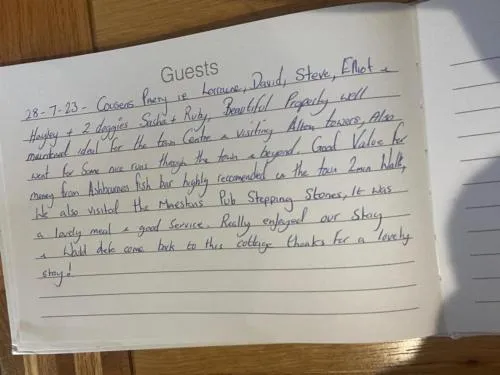 Guests
28-7-23 - Cousens Party ie Lorraine, David, Steve, Elliot &
Hayley + 2 doggies Sasha + Ruby, Beautiful Property well
maintained ideal for the town Centre & visiting Alton towers, Also
went for Some nice runs through the town & beyond Good Value for
money from Ashbournes fish bar highly recommended in the town 2min Walk,
We also visited the Marstons Pub Stepping Stones, It was
a lovely meal & good Service. Really enjoyed our Stay
& Would come back to this cottage thanks for a lovely
stay!